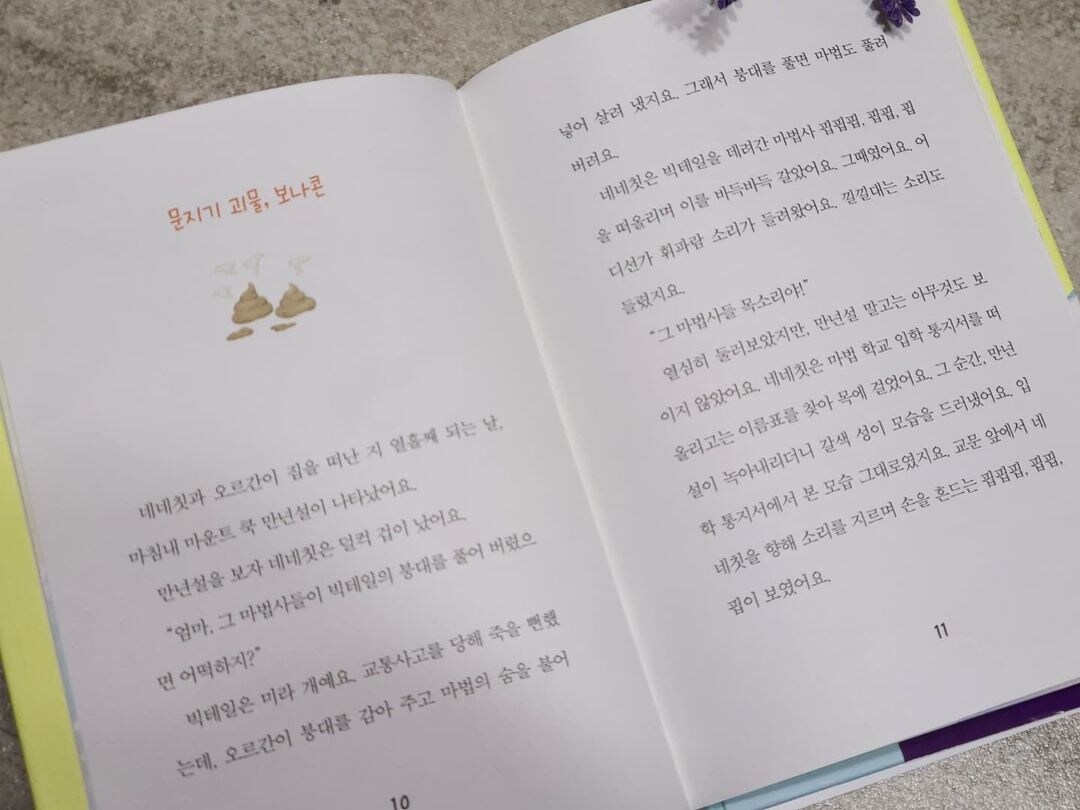 문지기 괴물, 보나콘
네네칫과 오르간이 집을 떠난 지 열흘째 되는 날,
마침내 마운트 쿡 만년설이 나타났어요.
만년설을 보자 네네칫은 덜컥 겁이 났어요.
“엄마, 그 마법사들이 빅테일의 붕대를 풀어 버렸으
면 어떡하지?”
빅테일은 미라 개예요. 교통사고를 당해 죽을 뻔했
는데, 오르간이 붕대를 감아 주고 마법의 숨을 불어
10
넣어 살려 냈지요. 그래서 붕대를 풀면 마법도 풀려
버려요.
네네칫은 빅테일을 데려간 마법사 핍핍핍, 핍핍, 핍
을 떠올리며 이를 바득바득 갈았어요. 그때였어요. 어
디선가 휘파람 소리가 들려왔어요. 낄낄대는 소리도
들렸지요.
“그 마법사들 목소리야!”
열심히 둘러보았지만, 만년설 말고는 아무것도 보
이지 않았어요. 네네칫은 마법 학교 입학 통지서를 떠
올리고는 이름표를 찾아 목에 걸었어요. 그 순간, 만년
설이 녹아내리더니 갈색 성이 모습을 드러냈어요. 입
학 통지서에서 본 모습 그대로였지요. 교문 앞에서 네
네칫을 향해 소리를 지르며 손을 흔드는 핍핍핍, 핍핍,
핍이 보였어요.
11